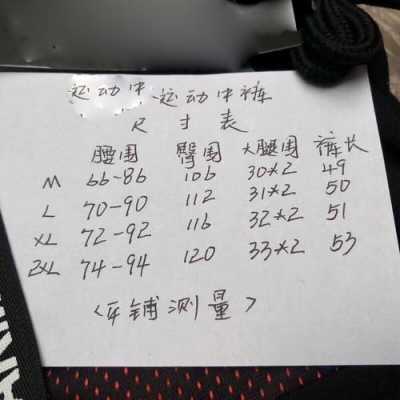 运动中 运动中裤
尺寸表
腰围 臀围 大腿围 裤长
M 66-86 106 30*2 49
L 70-90 112 31*2 50
XL 72-92 116 32*2 51
2XL 74-94 120 33*2 53
<平铺测量>